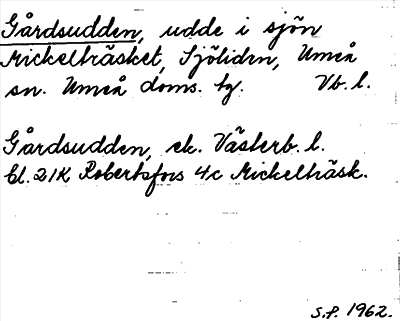 Gårdsudden, udde i sjön
Mickelträsket, Sjöliden, Umeå
sn. Umeå doms. tg. Vb. l.
Gårdsudden, ek. Västerb. l.
Bl. 21K Robertsfors 4c Mickelträsk.
S.f. 1962.